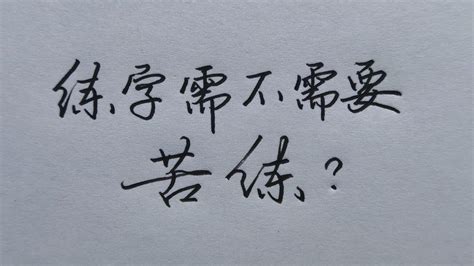 练字需不需要
苦练？